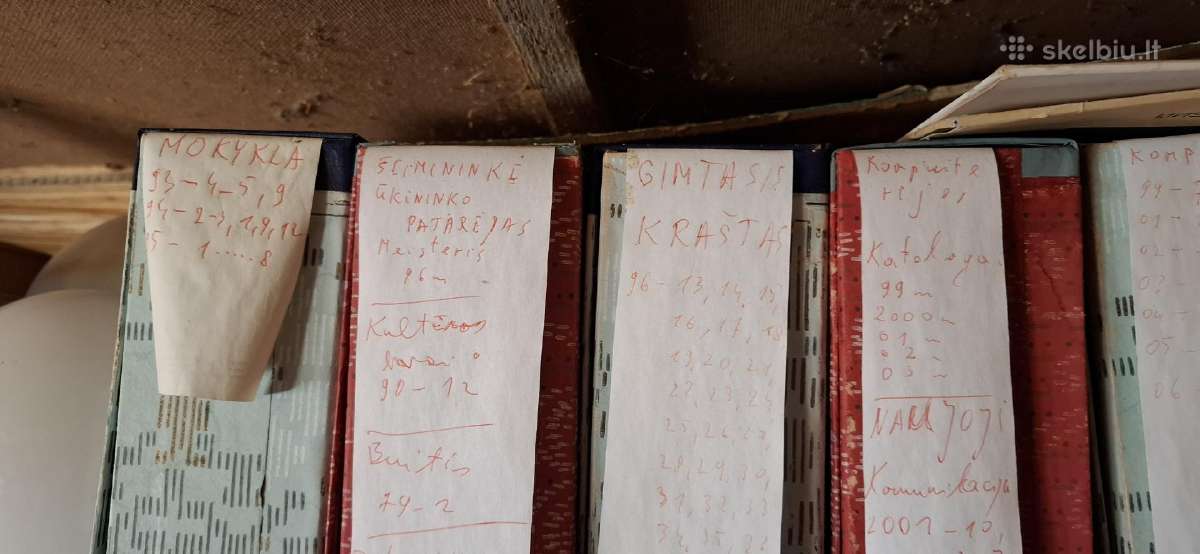 skelbiu.lt
MOKYKLA
93-4-5, 9
94-2-3, 1, 9, 12
95- 1.....8
ŠEIMININKĖ
ŪKININKO
PATARĖJAS
Meisteris
96m
Kultūros
barai
90-12
Buitis
79-2
GIMTASIS
KRAŠTAS
96-13, 14, 15,
16, 17, 18
19, 20, 21
22, 23, 24,
25, 26, 27,
28, 29, 30,
31, 32, 33
34, 35,
Kompiute
rijos
Katalogai
99m
2000m
01m
02m
03m
NAUJOJI
Komunikacija
2001-10,
KOMP
99-
01-
02-
03-
04-
05-
06